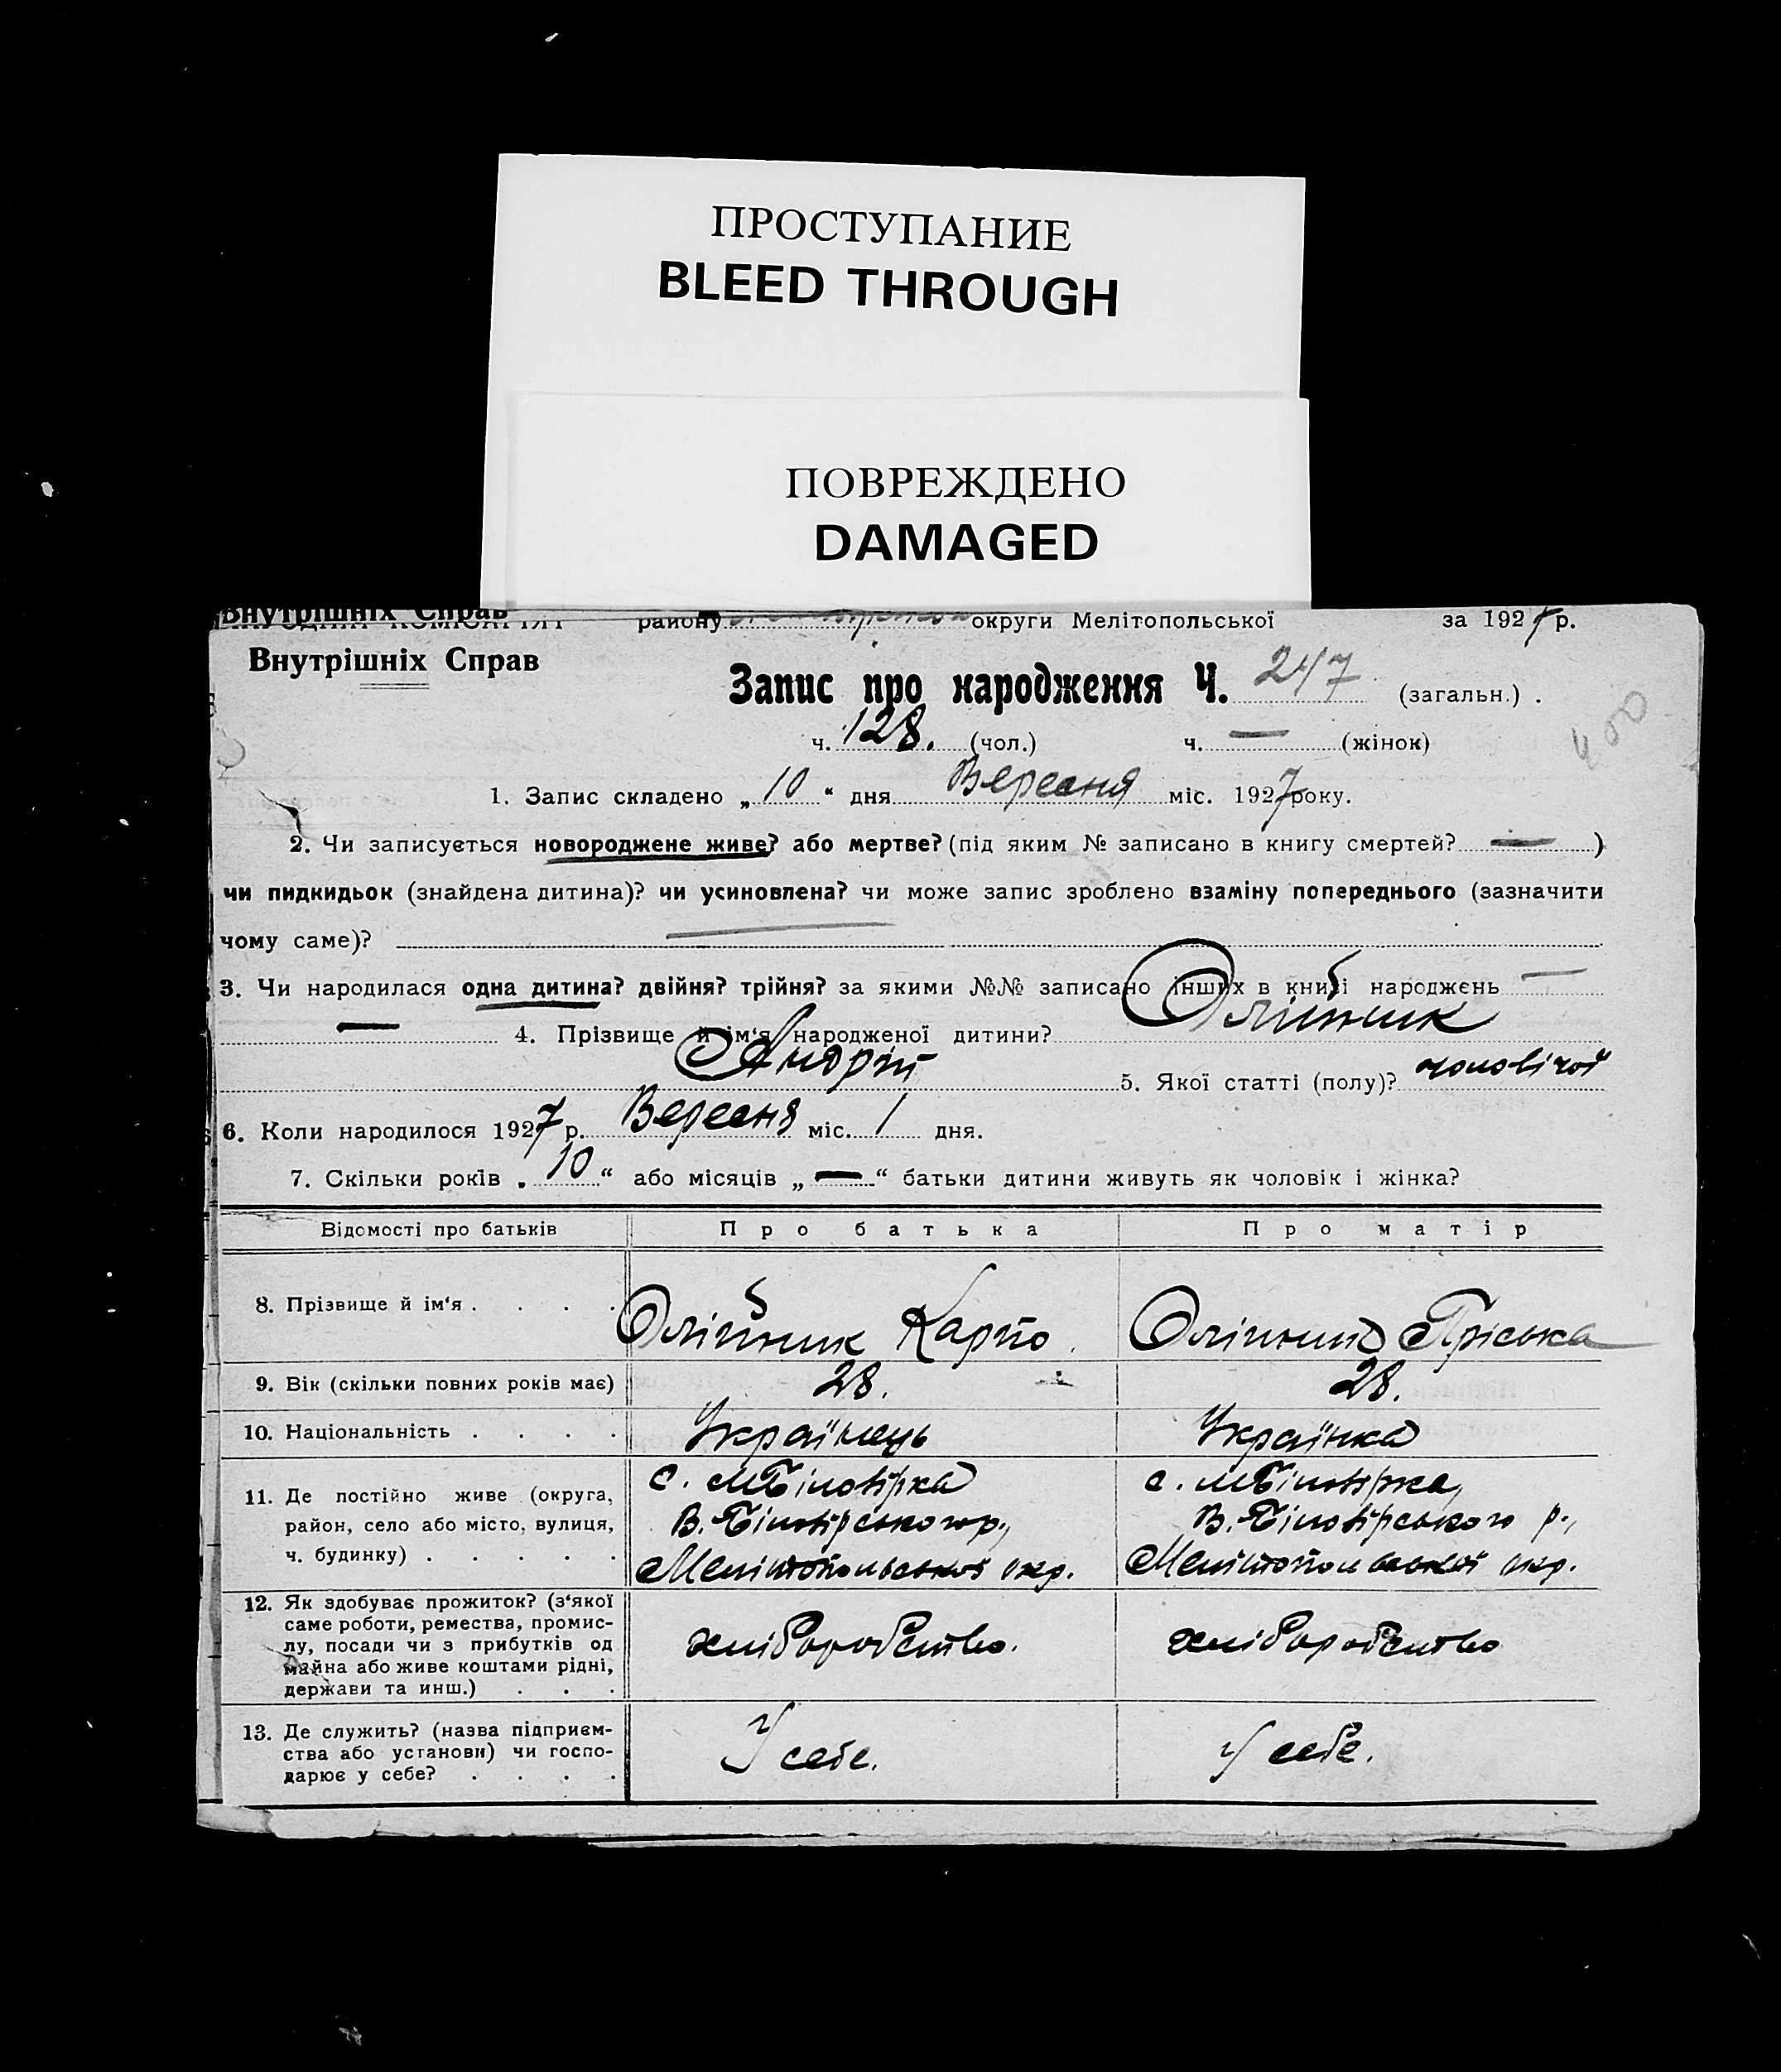 ПРОСТУПАНИЕ
BLEED THROUGH
ПОВРЕЖДЕНО
DAMAGED
Внутрішніх Справ
району округи Мелітопольської за 1927 р.
Внутрішніх Справ
Запис про народження Ч. 247 (загальн.) .
400
ч. 128. (чол.) ч. — (жінок)
1. Запис складено „ 10 “ дня Вересня міс. 1927 року.
2. Чи записується новороджене живе? або мертве? (під яким № записано в книгу смертей? — )
чи пидкидьок (знайдена дитина)? чи усиновлена? чи може запис зроблено взаміну попереднього (зазначити
чому саме)? —
3. Чи народилася одна дитина? двійня? трійня? за якими №№ записано інших в книзі народжень —
— 4. Прізвище й ім‘я народженої дитини? Олійник
Андрій 5. Якої статті (полу)? чоловічої
6. Коли народилося 1927 р. Вересня міс. 1 дня.
7. Скільки років „ 10 “ або місяців „ — “ батьки дитини живуть як чоловік і жінка?
Відомості про батьків Про батька Про матір
8. Прізвище й ім‘я . . . . Олійник Карпо Олійник Пріська
9. Вік (скільки повних років має) 28. 28.
10. Національність . . . . Українець Українка
11. Де постійно живе (округа, с. МБілозірка с. МБілозірка,
район, село або місто, вулиця, В. Білозірського р., В. Білозірського р.,
ч. будинку) . . . . . Мелітопольської окр. Мелітопольської окр.
12. Як здобуває прожиток? (з‘якої
саме роботи, ремества, промис-
лу, посади чи з прибутків од хліборобство. хліборобство
майна або живе коштами рідні,
держави та инш.) . . .
13. Де служить? (назва підприєм-
ства або установи) чи госпо- У себе. У себе.
дарює у себе? . . . .